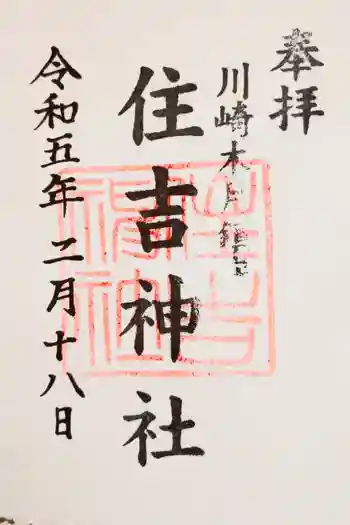 奉拝
川崎木月鎮守
住吉神社
令和五年二月十八日